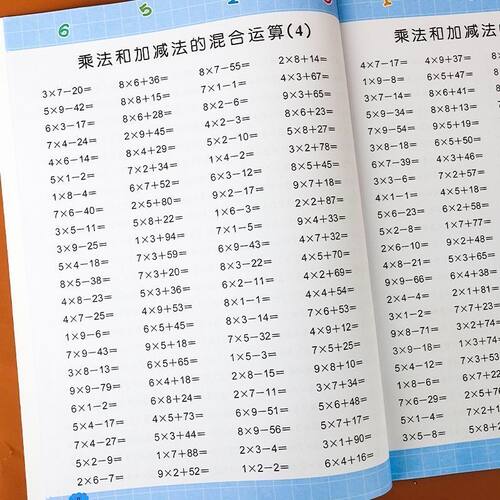 6 5
乘法和加减法的混合运算(4)
3×7−20= 8×6+36= 8×7−55= 2×8+14=
5×9−42= 8×8+15= 7×1−1= 4×3+67=
6×3−17= 8×6+28= 8×2−6= 9×3+65=
7×4−24= 2×9+45= 4×2−3= 6×2+23=
4×6−14= 8×4+29= 5×2−10= 5×8+27=
5×1−2= 7×2+34= 1×4−2= 3×2+78=
1×8−4= 6×7+52= 6×3−12= 8×5+45=
7×6−40= 2×5+80= 9×2−17= 9×7+18=
3×5−11= 5×8+22= 1×6−3= 2×2+87=
3×9−25= 1×3+94= 7×1−5= 9×4+33=
5×4−18= 7×5+59= 6×9−43= 4×7+32=
8×5−38= 7×3+20= 8×3−22= 4×5+70=
4×8−23= 5×3+36= 6×2−11= 4×2+69=
4×7−25= 4×9+53= 8×1−1= 4×4+54=
1×9−6= 6×5+45= 8×3−14= 7×6+53=
7×9−43= 9×3+18= 7×5−32= 4×9+12=
3×8−13= 6×5+65= 1×5−3= 7×5+25=
9×9−79= 4×6+18= 2×8−15= 9×8+10=
6×1−2= 6×8+24= 2×7−11= 3×7+34=
5×4−17= 4×5+73= 6×9−51= 5×6+48=
7×4−27= 5×3+44= 8×9−56= 5×7+17=
5×2−9= 1×7+88= 2×3−4= 3×1+90=
2×6−7= 9×2+52= 1×2−2= 6×4+16=
乘法和加减法
4×7−17= 4×9+37=
1×9−8= 6×5+47=
3×7−14= 8×6+41=
5×9−34= 8×8+13=
9×5+19=
3×8−18= 6×5+50=
6×7−39= 3×4+46=
3×3−6= 7×2+57=
4×1−1= 5×5+18=
6×5−23= 6×2+58=
5×2−8= 1×7+77=
2×6−10= 9×2+48=
4×8−21= 5×3+65=
9×9−66= 6×4+38=
2×4−4= 2×1+81=
2×3−1= 7×3+23
9×8−71= 3×2+74
3×9−18= 1×3+74
5×4−12= 7×3+53
7×6−29= 5×2+76
5×1−4= 7×2+
3×5−8= 5×8+2